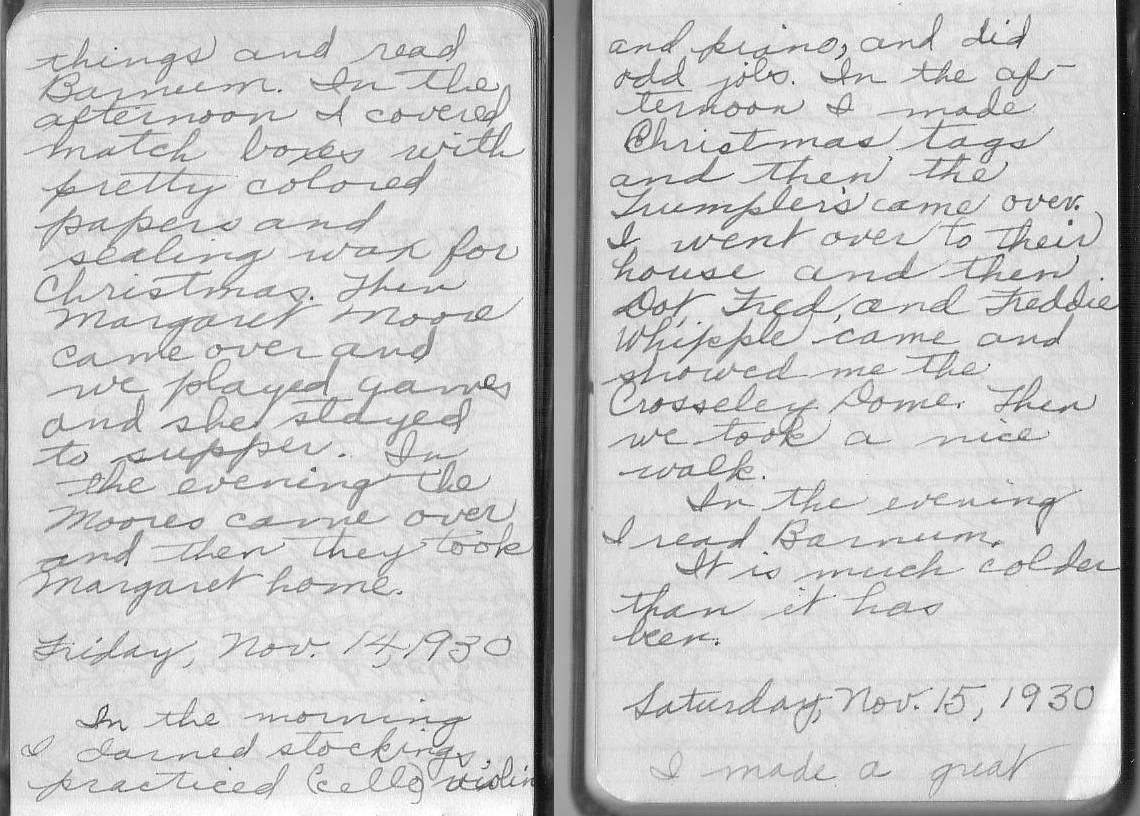 things and read
Barnum. In the
afternoon I covered
match boxes with
pretty colored
papers and
sealing wax for
Christmas. Then
Margaret Moore
came over and
we played games
and she stayed
to supper. In
the evening the
Moores came over
and then they took
Margaret home.
Friday, Nov. 14, 1930
In the morning
I darned stockings,
practiced (cello) violin
and piano, and did
odd jobs. In the af-
ternoon I made
Christmas tags
and then the
Trumpler's came over.
I went over to their
house and then
Dot, Fred, and Freddie
Whipple came and
showed me the
Crosseley Dome. Then
we took a nice
walk.
In the evening
I read Barnum.
It is much colder
than it has
been.
Saturday, Nov. 15, 1930
I made a great